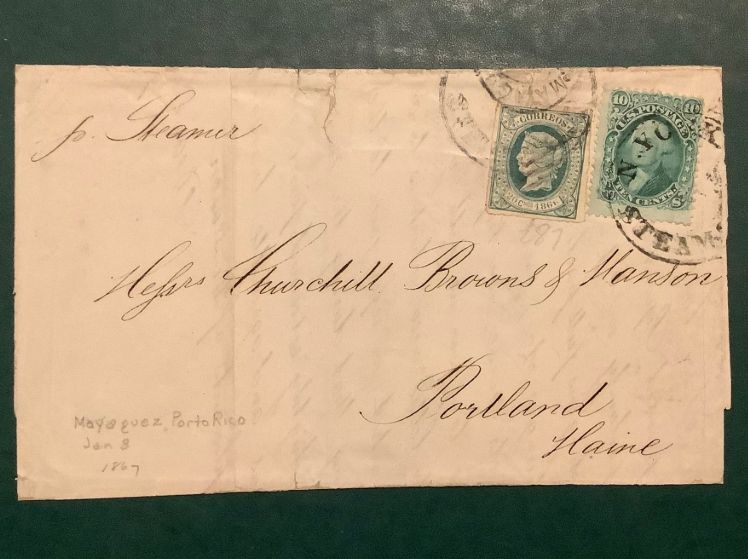 p. Steamer
CORREOS
1866
10 10
U.S. POSTAGE
TEN CENTS
N. YORK
STEAMSH
Messrs Churchill Browns & Manson
Portland
Maine
Mayaguez, Porto Rico
Jan 8
1867